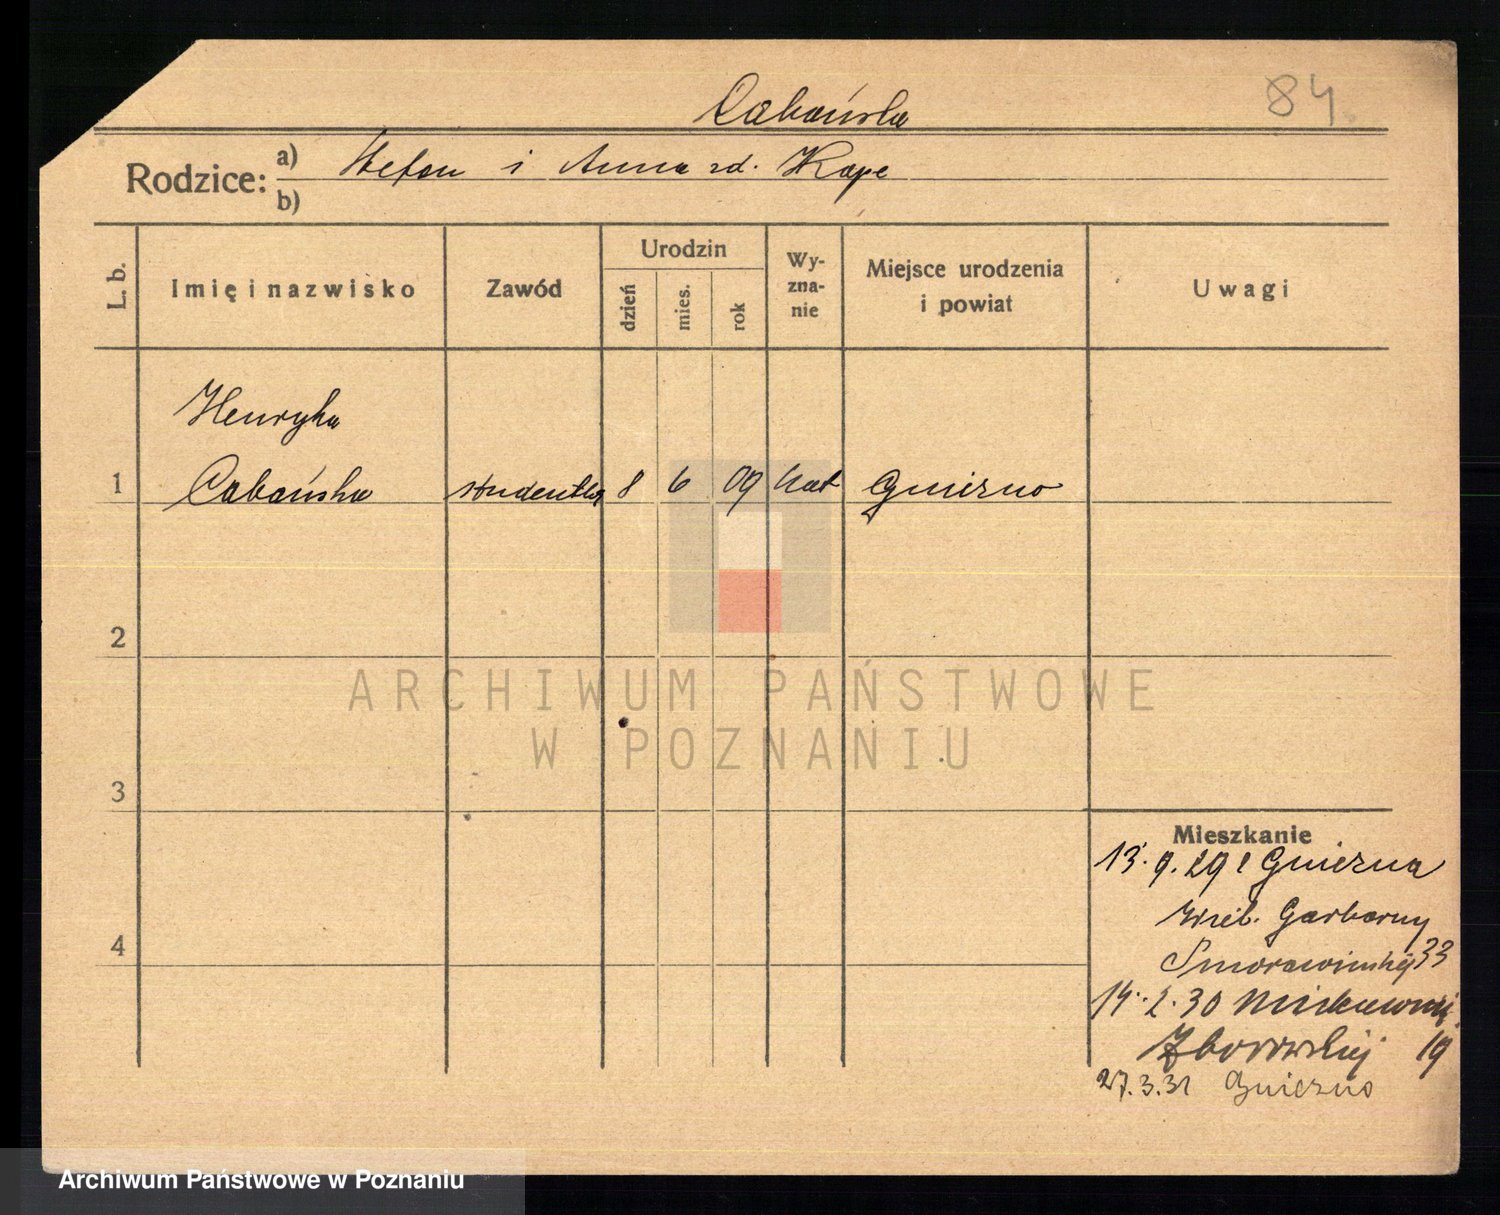 84.
Cabańska
Rodzice: a) Stefan i Anna zd. Kape
b)
L. b. Imię i nazwisko Zawód Urodzin dzień mies. rok Wy-zna-nie Miejsce urodzenia i powiat Uwagi
Henryka
1 Cabańska studentka 8 6 09 kat Gniezno
2
ARCHIWUM PAŃSTWOWE
W POZNANIU
3
Mieszkanie
13.9.29 z Gniezna
Garbary
4
33
14.2.30
Zborowskiej 19
27.3.31 Gniezno
Archiwum Państwowe w Poznaniu